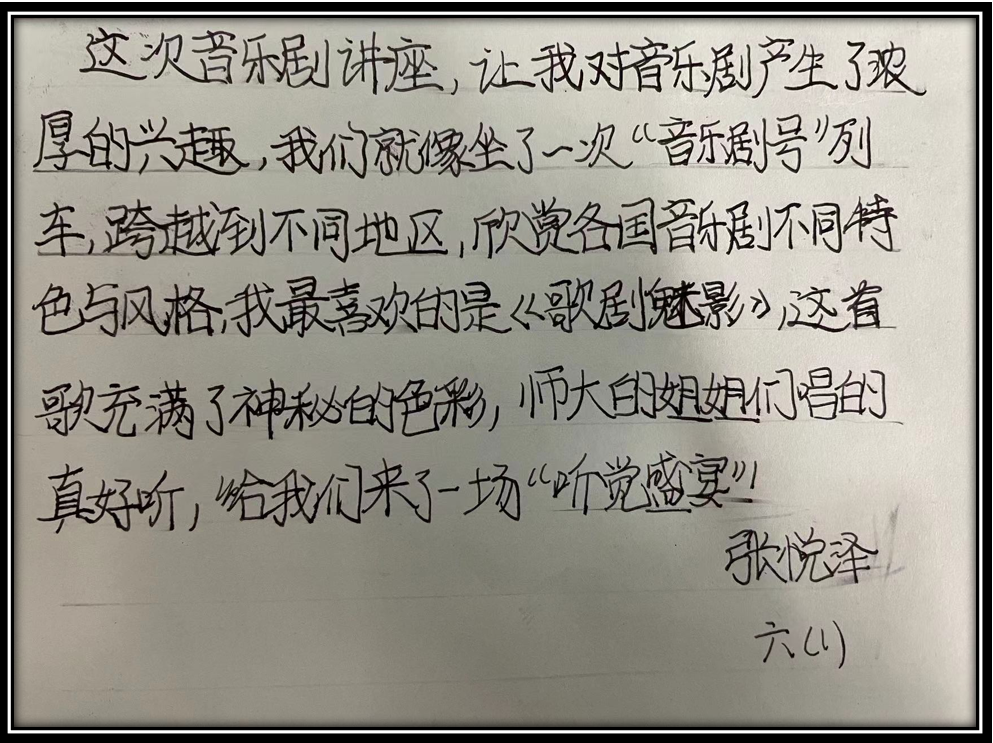 这次音乐剧讲座，让我对音乐剧产生了浓
厚的兴趣，我们就像坐了一次“音乐剧号”列
车，跨越到不同地区，欣赏各国音乐剧不同特
色与风格，我最喜欢的是《歌剧魅影》，这首
歌充满了神秘的色彩，师大的姐姐们唱的
真好听，给我们来了一场“听觉盛宴”！
张悦泽
六(1)